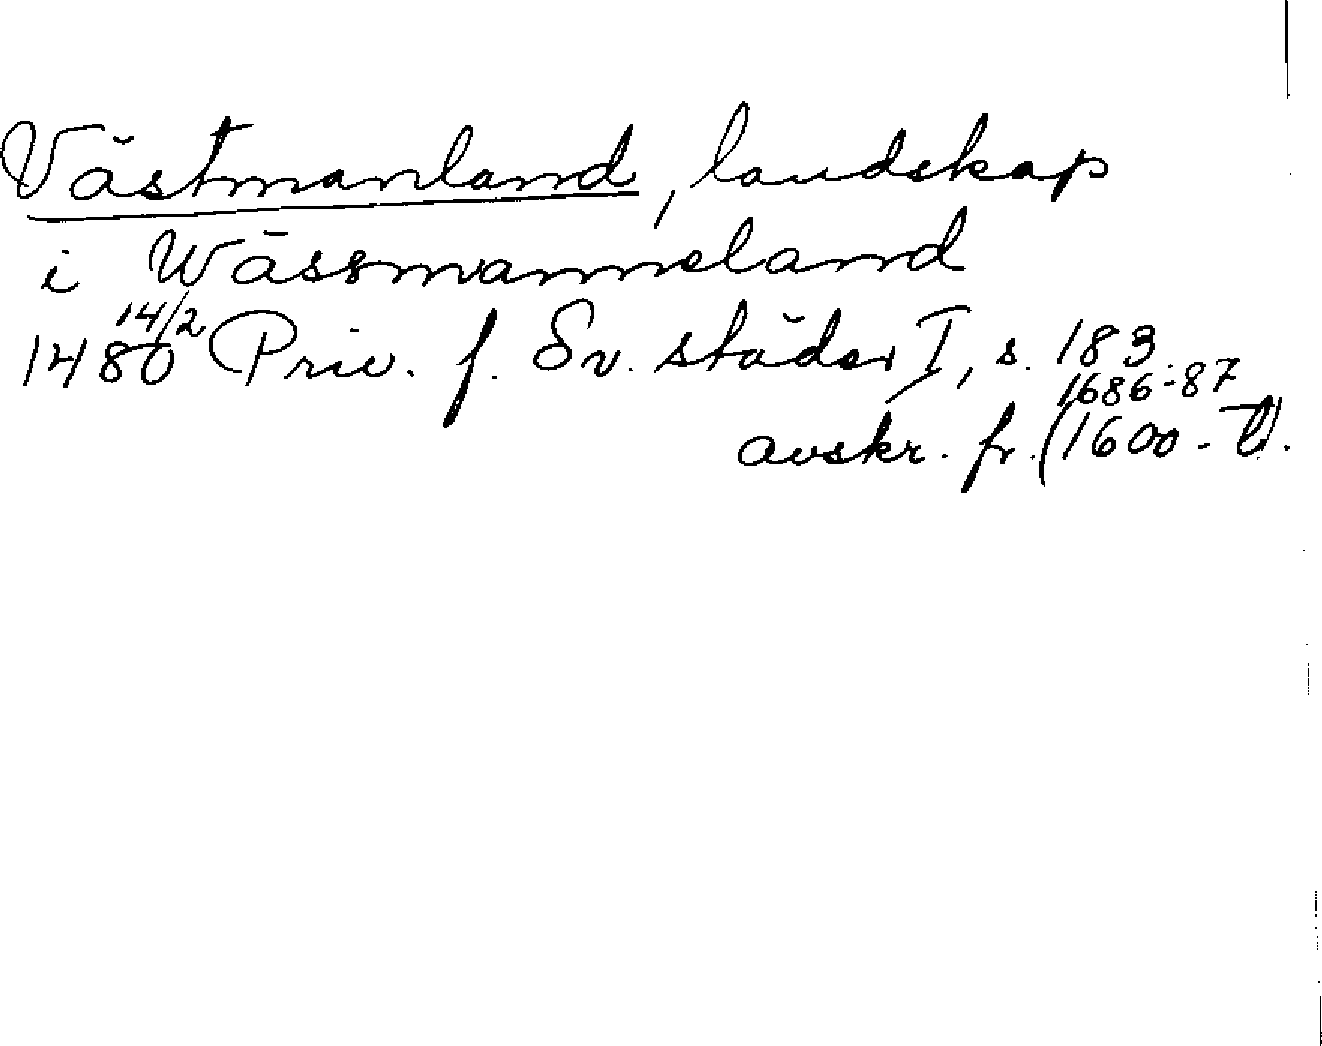 Västmanland, landskap
i Wässmanneland
14/2
1480 Priv. f. Sv. städer I, s. 183
1686-87
avskr. fr. (1600-t).